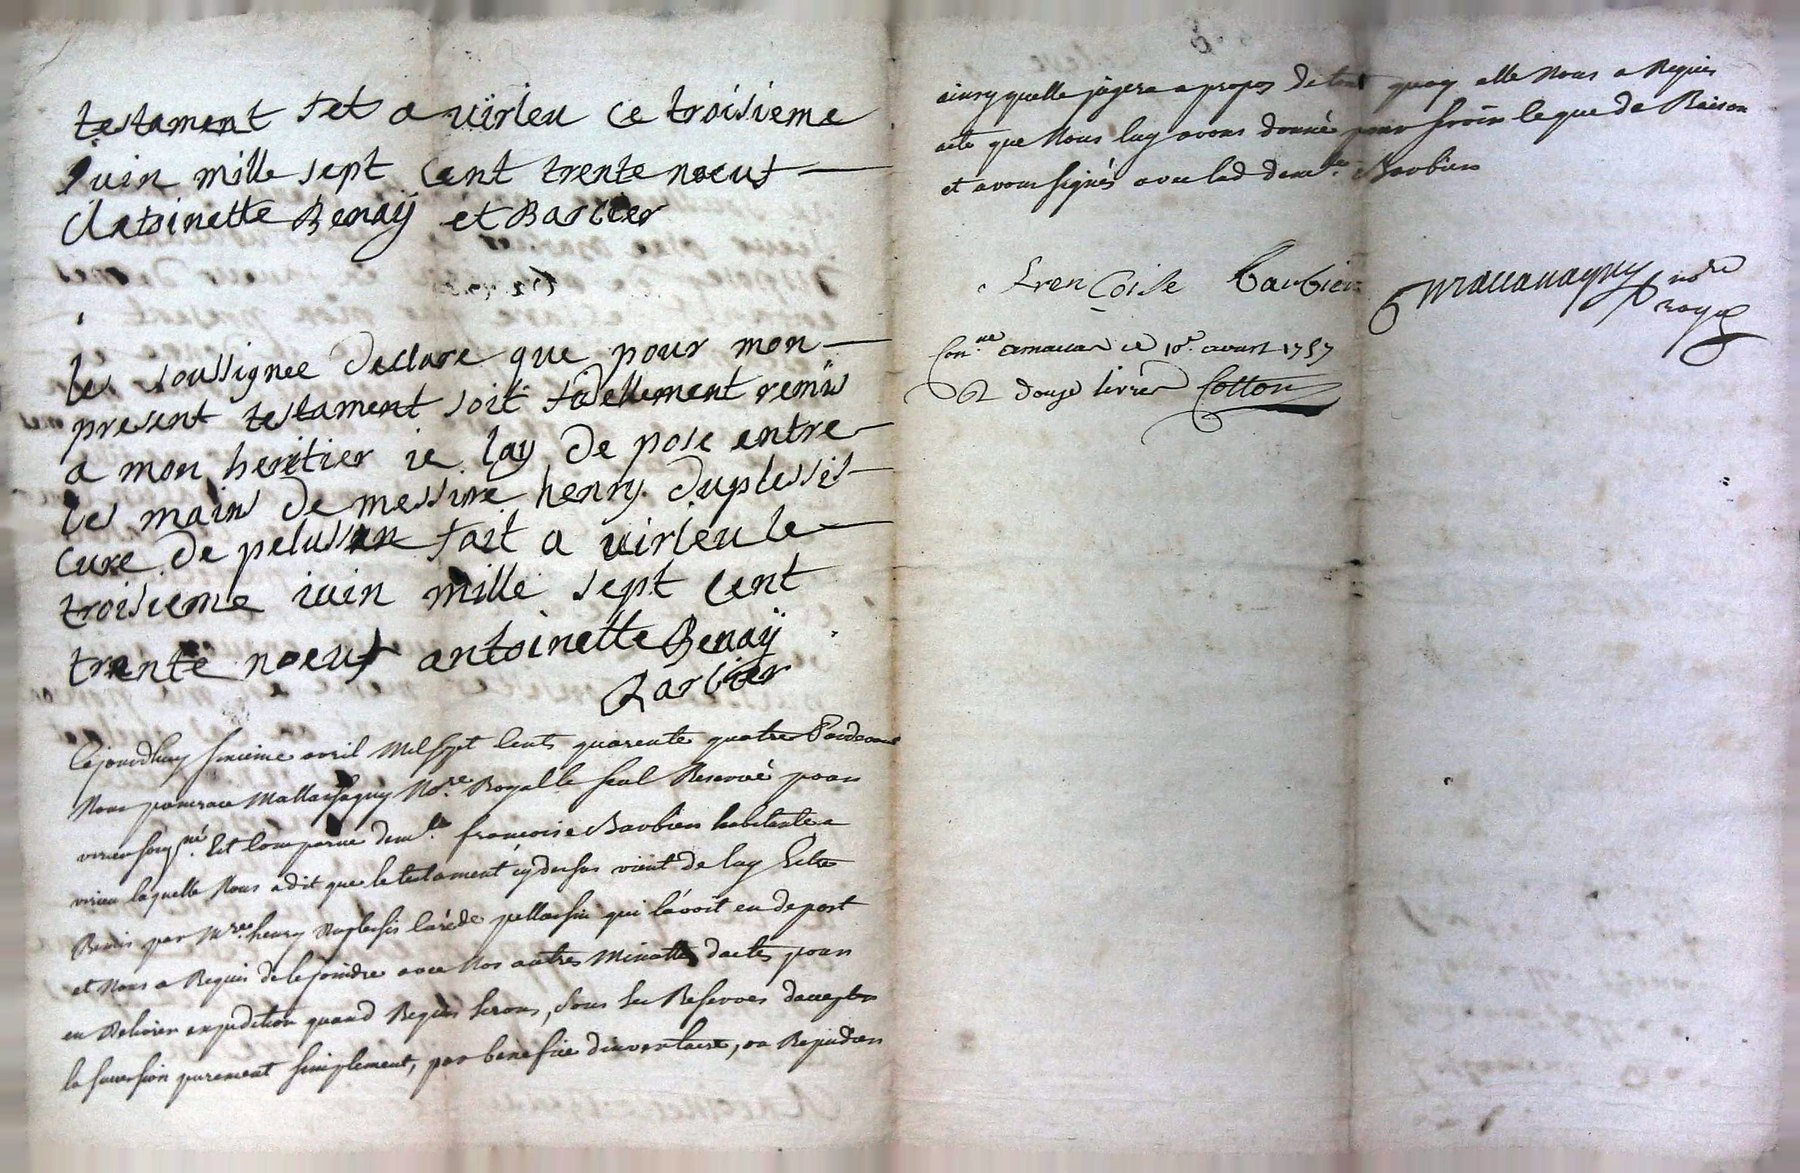 testament fet a virieu ce troisieme
juin mille sept cent trente noeuf
Antoinette Benaÿ et Barbier
ie soussignee declare que pour mon
present testament soit fidellement remis
a mon heritier ie lay de pose entre
les mains de messire henry duplessis
cure de pelussin fait a virieu le
troisieme iuin mille sept cent
trente noeuf antoinette Benaÿ
Barbier
Cejourdhuy sixieme avril Mil sept cents quarente quatre Pardevant
Nous Mallassagny No.re Royal le seul Reservé pour
virieu soussigné Est comparue dem.lle francoise Barbier habitante a
virieu laquelle Nous a dit que le testament cy dessus vient de luy Estre
Remis par M.re henry duplessis curé de pellussin qui l'avoit en depost
et Nous a Requis de le joindre avec Nos autres Minattes dactes pour
en delivrer expedition quand Requis serons, sous les Reserves daccepter
la succession purement simplement, par benefice dinventaire, ou Repudier
ainsy quelle jugera a propos de tout quoy elle Nous a Requis
acte que Nous luy avons donné pour servir le que de Raison
et avons signés avec lad dem.lle Barbier
frencoise barbier Mallassagny no.re royal
Con.lle amaclas ce 10.e avril 1757
douze livres Cotton